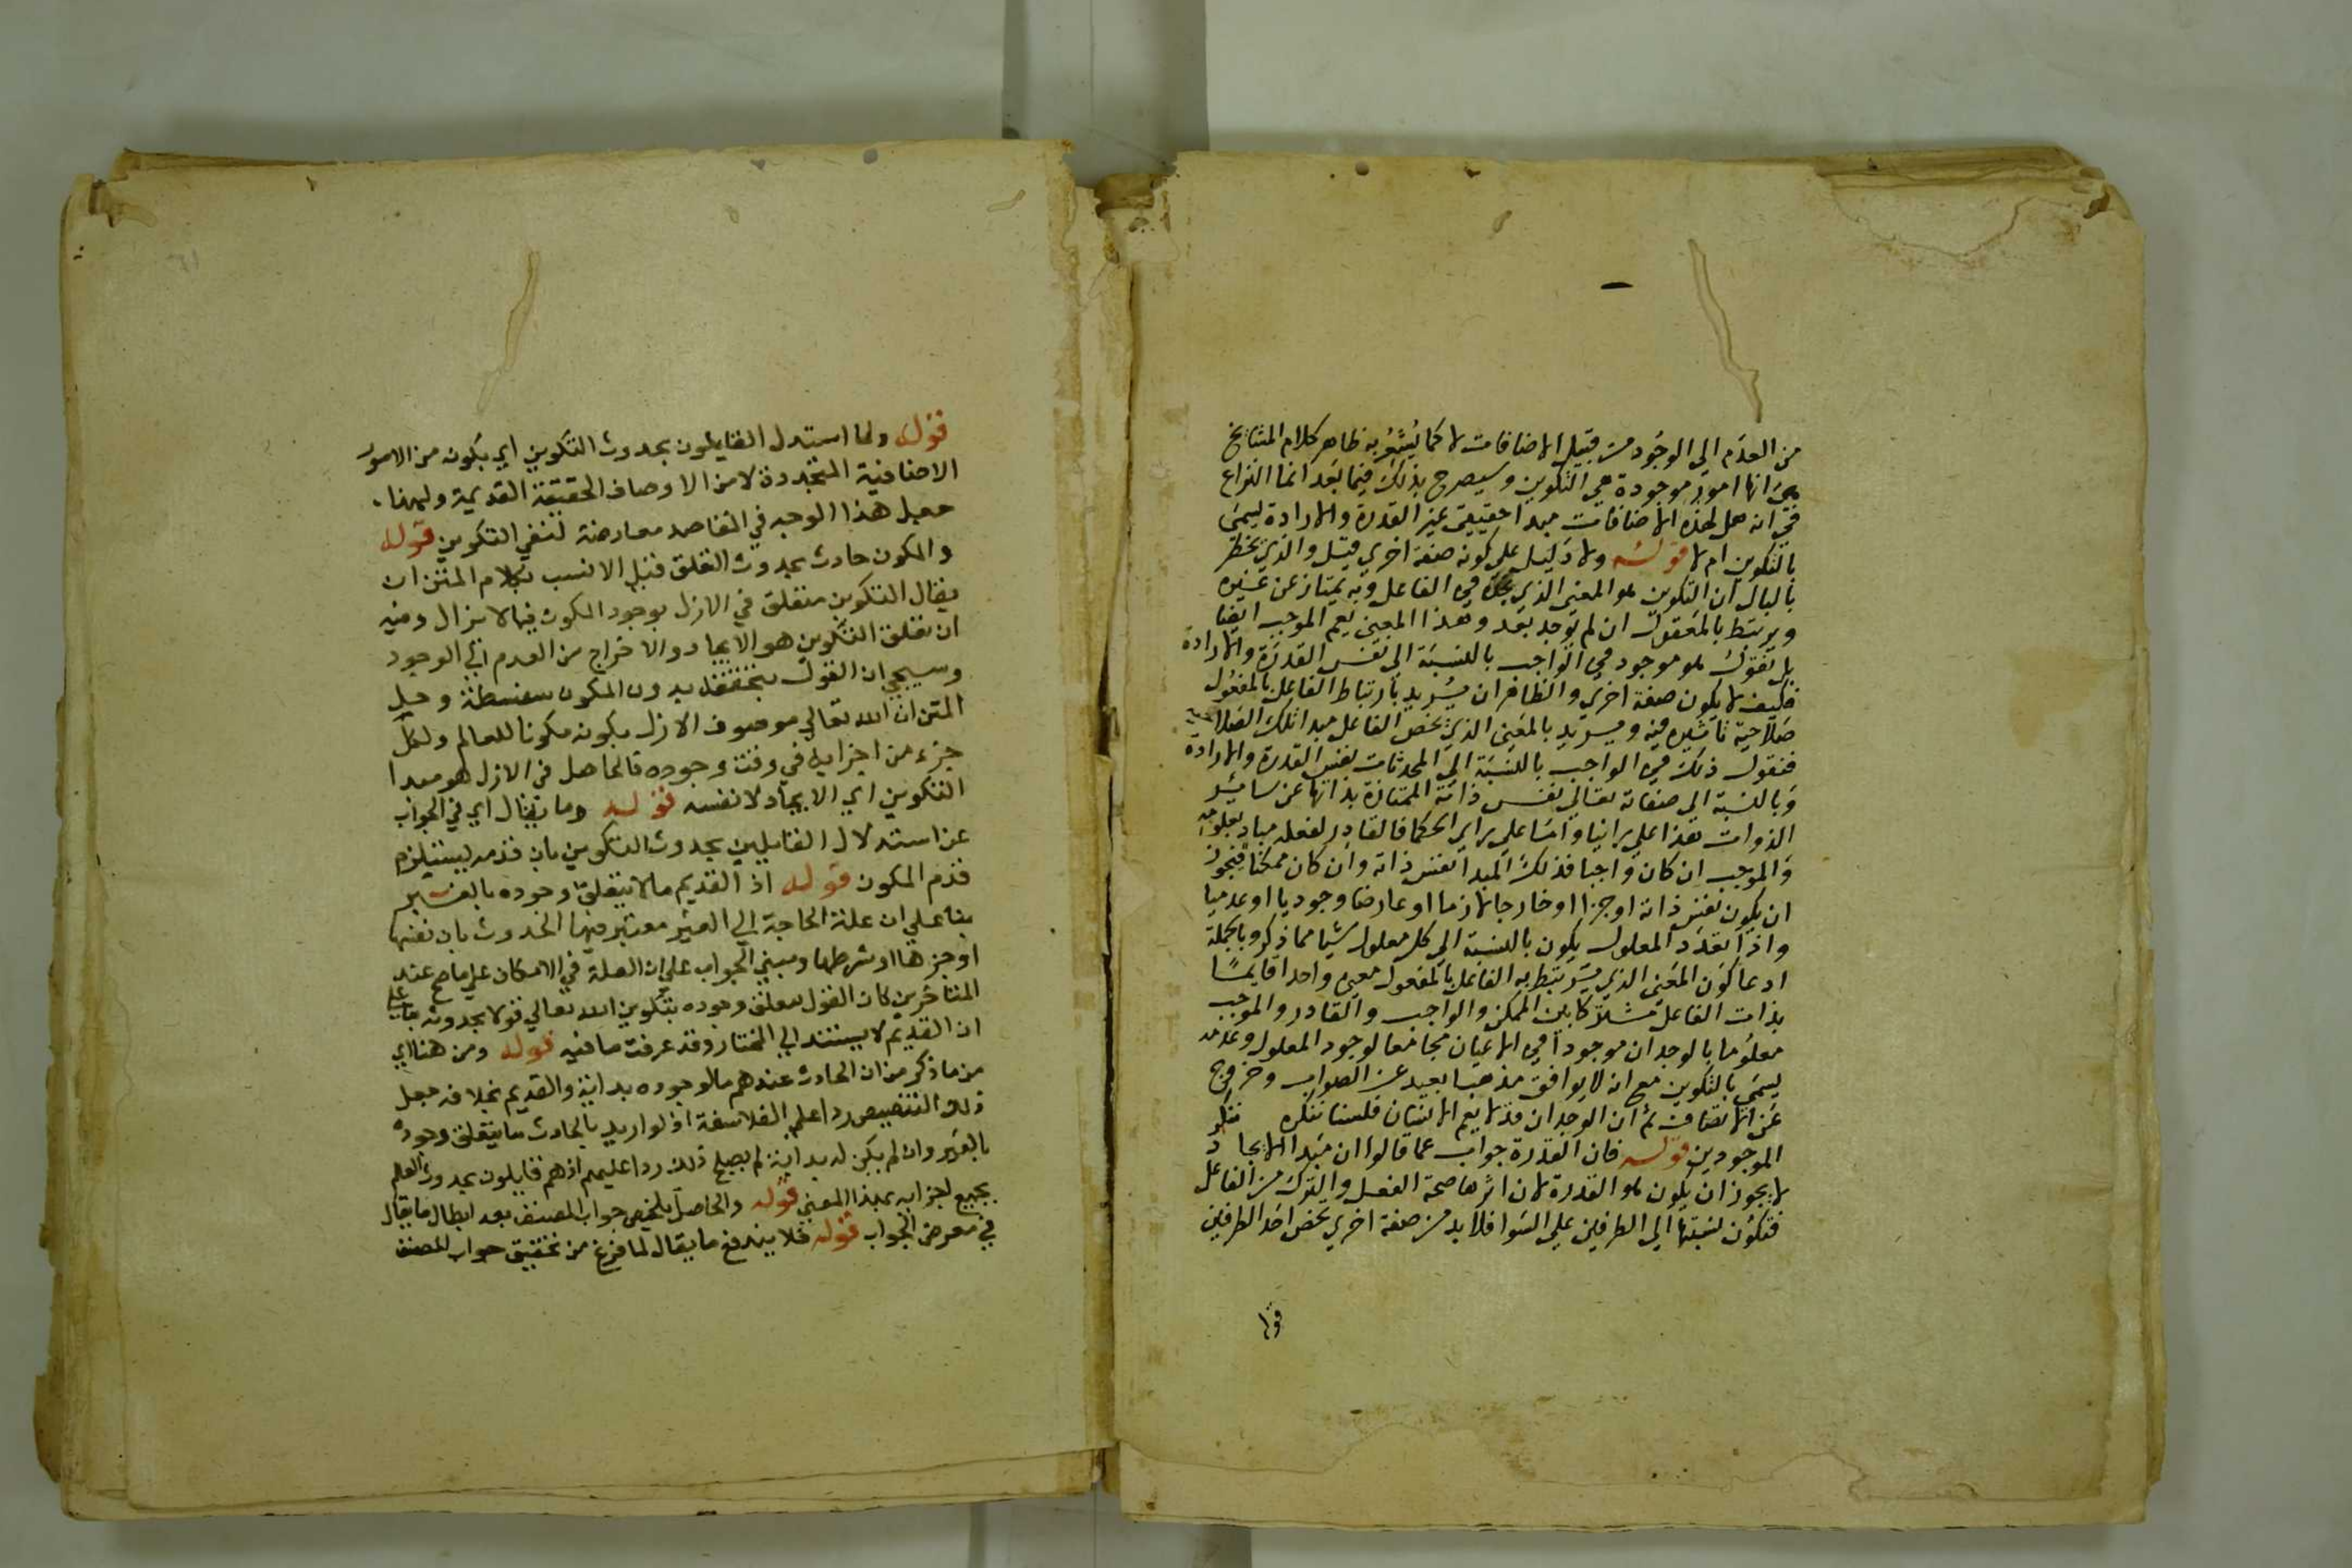 من العدم الي الوجود من قبيل الاضافات لا كما يُشعُر به ظاهر كلام المشايخ
من انها امور موجودة هي التكوين وسيصرح بذلك فيما بعد انما النزاع
في انه هل لهذه الاضافات مبدا حقيقي غير القدرة والارادة ليسمي
بالتكوين ام لا قوله ولا دليل علي كونه صفة اخري قيل والذي يخطر
بالبال ان التكوين هو المعني الذي نجده في الفاعل وبه يمتاز عن غيره
ويرتبط بالمفعول ان لم يوجد بعد وهذا المعني يعم الموجب ايضا
بل نقول هو موجود في الواجب بالنسبة الي نفس القدرة والارادة
فكيف لا يكون صفة اخري والظاهر ان يُريد بارتباط الفاعل بالمفعول
صلاحية تاثيره فيه ويريد بالمعني الذي يخص الفاعل مبدا تلك الصلاحية
فنقول ذلك في الواجب بالنسبة الي المحدثات نفس القدرة والارادة
وبالنسبة الي صفاته تعالي نفس ذاته الممتازة بذاتها عن سائر
الذوات هذا علي راينا واما علي راي الحكما فالقادر لفعله مباد معلومة
والموجب ان كان واجبا فذلك المبدا نفس ذاته وان كان ممكنا فيجوز
ان يكون نفس ذاته او جزا او خارجا لازما او عارضا وجوديا او عدميا
واذا تعدد المعلول يكون بالنسبة الي كل معلول شيا مما ذكر وبالجملة
ادعا كون المعني الذي يرتبط به الفاعل بالمفعول معني واحدا قايما
بذات الفاعل مشتركا بين الممكن والواجب والقادر والموجب
معلوما بالوجدان موجودا في الاعيان مجامعا لوجود المعلول وعدمه
يسمي بالتكوين مع انه لا يوافق مذهبا بعيد عن الصواب وخروج
عن الانصاف ثم ان الوجدان قد لا يعم الانسان فلسنا ننكره ننكر
الموجودين قوله فان القدرة جواب عما قالوا ان مبدا الايجاد
لا يجوز ان يكون هو القدرة لان اثرها صحة الفعل والترك من الفاعل
فتكون نسبتها الي الطرفين علي السوا فلا بد من صفة اخري تخص احد الطرفين
قوله
61
قوله ولما استدل القايلون بحدوث التكوين اي بكونه من الامور
الاضافية المتجددة لا من الاوصاف الحقيقة القديمة ولهذا
جعل هذا الوجه في المقاصد معارضة لنفي التكوين قوله
والمكون حادث بحدوث التعلق قيل الانسب بكلام المتن ان
يقال التكوين متعلق في الازل بوجود المكون فيما لا يزال وفيه
ان تعلق التكوين هو الايجاد والاخراج من العدم الي الوجود
وسيجي ان القول بتحققه بدون المكون سفسطة وحل
المتن ان الله تعالي موصوف الازل بكونه مكونا للعالم ولكل
جزء من اجزايه في وقت وجوده فالحاصل في الازل هو مبدا
التكوين اي الايجاد لا نفسه قوله وما يقال اي في الجواب
عن استدلال القايلين بحدوث التكوين بان قدمه يستلزم
قدم المكون قوله اذ القديم ما لا يتعلق وجوده بالغير
بنا علي ان علة الحاجة الي الغير معتبر فيها الحدوث بان نفسها
او جزءها او شرطها ومبني الجواب علي ان العلة في الامكان علي ما صح عند
المتاخرين كان القول بتعلق وجوده بتكوين الله تعالي قولا بحدوثه بناء علي
ان القديم لا يستند الي المختار وقد عرفت ما فيه قوله ومن هنا اي
من ما ذكر من ان الحادث عندهم ما لوجوده بداية والقديم بخلافه جعل
ذلك التنصيص ردا علي الفلاسفة اذ لو اريد بالحادث ما يتعلق وجوده
بالغير وان لم يكن له بداية لم يصلح ذلك ردا عليهم اذ هم قايلون بحدوث العالم
بجميع اجزايه بهذا المعني قوله والحاصل تلخيص جواب المصنف بعد ابطال ما يقال
في معرض الجواب قوله فلا يندفع ما يقال لما فرغ من تحقيق جواب المصنف